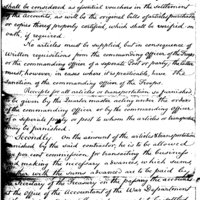 shall be considered as essential vouchers in the settlement
of the accounts, as will be the original bills of articles purchased
or copies thereof properly certified, which shall be verified on
oath, if required.
No articles must be supplied, but in consequence of
Written requisitions from the commanding officer of the Troops
or the commanding officer of a separate Post or party, the latter
must however, in cases where it is practicable, have the
Sanction of the commanding officer of the Troops.
Receipts for all articles or transportation so furnished
to be given by the Quarter master acting under the orders
of the commanding officer or by the commanding officer
of a separate party or post to whom the articles or transportation
may be furnished.
Secondly. On the amount of the articles & transportation
furnished by the said contractor, he is to be allowed
per cent commission, for transacting the business
and making the necessary advances, which sums
with the sums advanced are to be paid by
the Secretary of the Treasury on the passing the accounts
at the office of the Accountant of the War Department